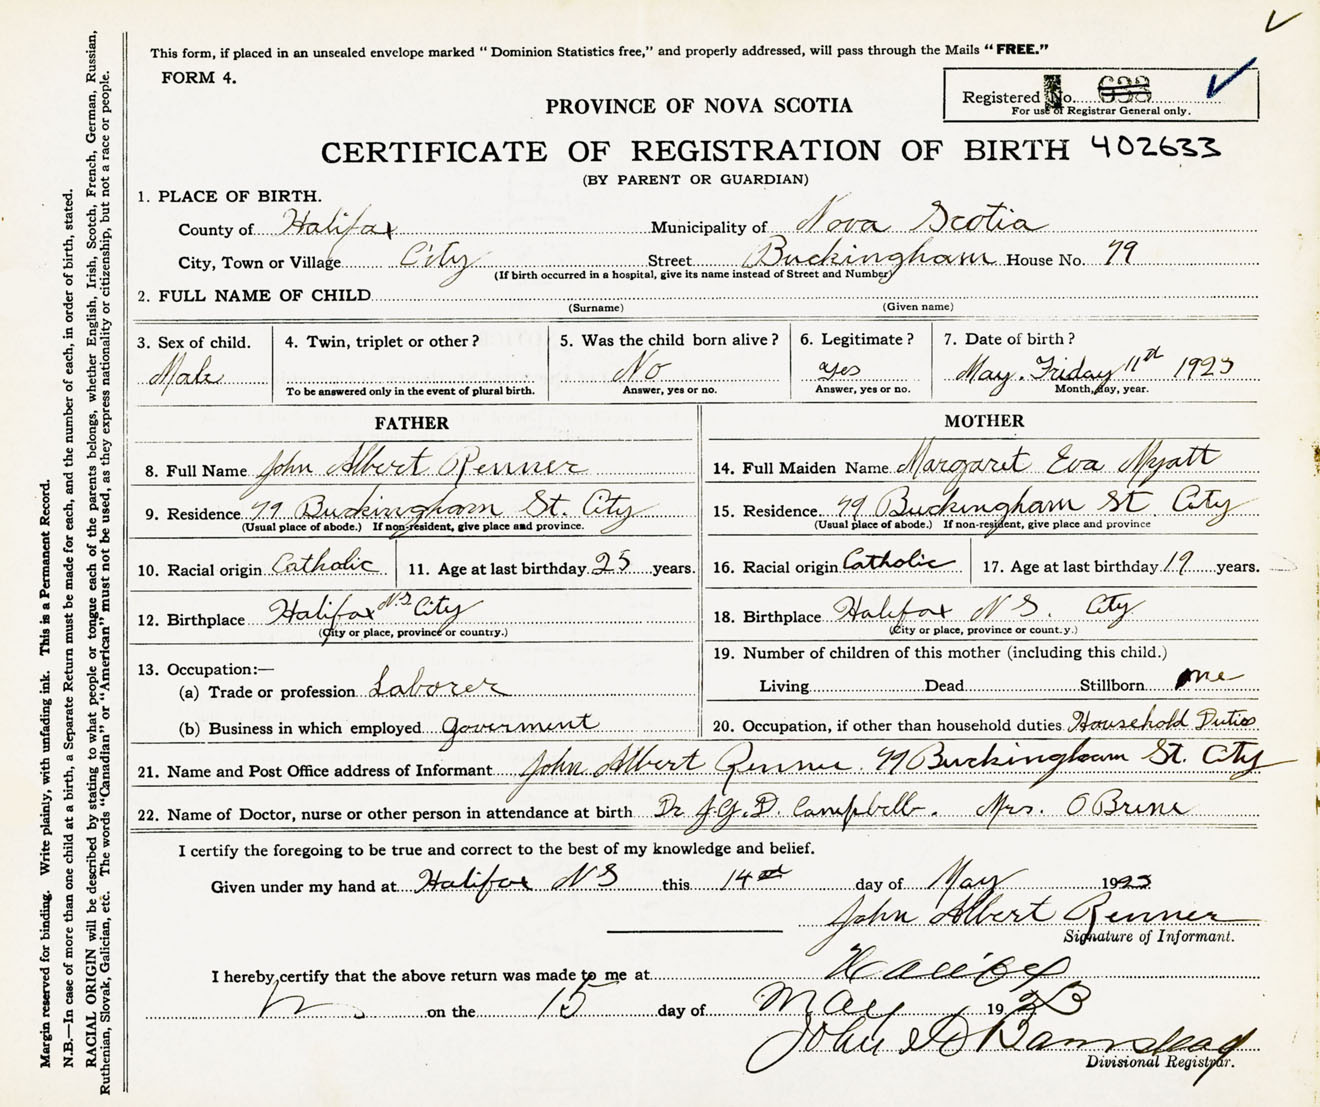 This form, if placed in an unsealed envelope marked " Dominion Statistics free," and properly addressed, will pass through the Mails "FREE."
FORM 4.
Registered No. 633
For use of Registrar General only.
PROVINCE OF NOVA SCOTIA
CERTIFICATE OF REGISTRATION OF BIRTH 402633
(BY PARENT OR GUARDIAN)
1. PLACE OF BIRTH.
County of Halifax Municipality of Nova Scotia
City, Town or Village City Street Buckingham House No. 79
(If birth occurred in a hospital, give its name instead of Street and Number)
2. FULL NAME OF CHILD
(Surname) (Given name)
3. Sex of child. 4. Twin, triplet or other? 5. Was the child born alive? 6. Legitimate? 7. Date of birth?
Male No Yes May. Friday 11th 1923
To be answered only in the event of plural birth. Answer, yes or no. Answer, yes or no. Month, day, year.
FATHER MOTHER
8. Full Name John Albert Renner 14. Full Maiden Name Margaret Eva Myatt
9. Residence 79 Buckingham St. City 15. Residence 79 Buckingham St City
(Usual place of abode.) If non-resident, give place and province. (Usual place of abode.) If non-resident, give place and province
10. Racial origin Catholic 11. Age at last birthday 25 years. 16. Racial origin Catholic 17. Age at last birthday 19 years.
12. Birthplace Halifax N.S City 18. Birthplace Halifax N S. City
(City or place, province or country.) (City or place, province or count.y.)
13. Occupation:— 19. Number of children of this mother (including this child.)
(a) Trade or profession Laborer Living Dead Stillborn one
(b) Business in which employed Goverment 20. Occupation, if other than household duties Household Duties
21. Name and Post Office address of Informant John Albert Renner. 79 Buckingham St. City
22. Name of Doctor, nurse or other person in attendance at birth Dr J.G.D. Campbell. Mrs. O Brine
I certify the foregoing to be true and correct to the best of my knowledge and belief.
Given under my hand at Halifax N S this 14 day of May 1923
John Albert Renner
Signature of Informant.
I hereby certify that the above return was made to me at Halifax
on the 15 day of May 1923
John
Divisional Registrar.
Margin reserved for binding. Write plainly, with unfading ink. This is a Permanent Record.
N.B.—In case of more than one child at a birth, a Separate Return must be made for each, and the number of each, in order of birth, stated.
RACIAL ORIGIN will be described by stating to what people or tongue each of the parents belongs, whether English, Irish, Scotch, French, German, Russian,
Ruthenian, Slovak, Galician, etc. The words "Canadian" or "American" must not be used, as they express nationality or citizenship, but not a race or people.